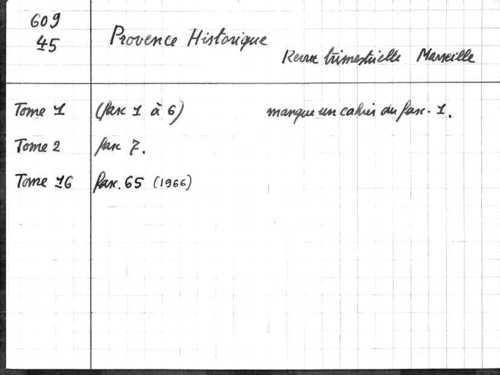 609
45
Provence Historique
Revue trimestrielle Marseille
Tome 1 (fasc 1 à 6) manque un cahier du fasc. 1.
Tome 2 fasc 7.
Tome 16 fasc. 65 (1966)